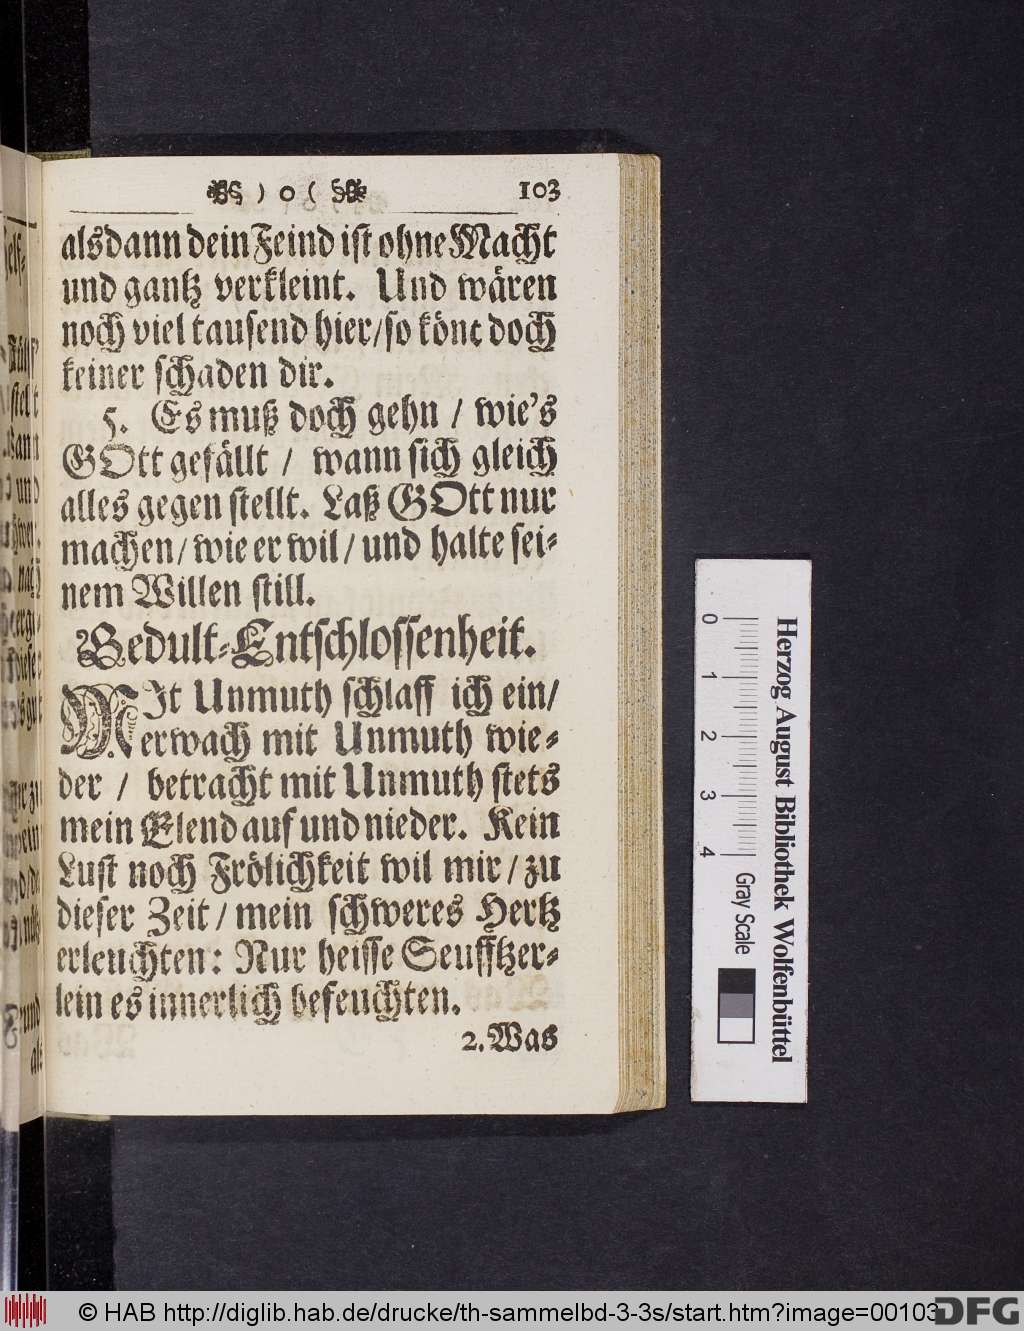 ) o ( 103
alsdann dein Feind ist ohne Macht
und gantz verkleint. Und wären
noch viel tausend hier/ so könt doch
keiner schaden dir.
5. Es muß doch gehn / wie's
GOtt gefällt / wann sich gleich
alles gegen stellt. Laß GOtt nur
machen/ wie er wil/ und halte sei-
nem Willen still.
Gedult-Entschlossenheit.
MIt Unmuth schlaff ich ein/
erwach mit Unmuth wie-
der / betracht mit Unmuth stets
mein Elend auf und nieder. Kein
Lust noch Frölichkeit wil mir/ zu
dieser Zeit/ mein schweres Hertz
erleuchten: Nur heisse Seufftzer-
lein es innerlich befeuchten.
2. Was
0 1 2 3 4 Gray Scale
Herzog August Bibliothek Wolfenbüttel
© HAB http://diglib.hab.de/drucke/th-sammelbd-3-3s/start.htm?image=00103
DFG